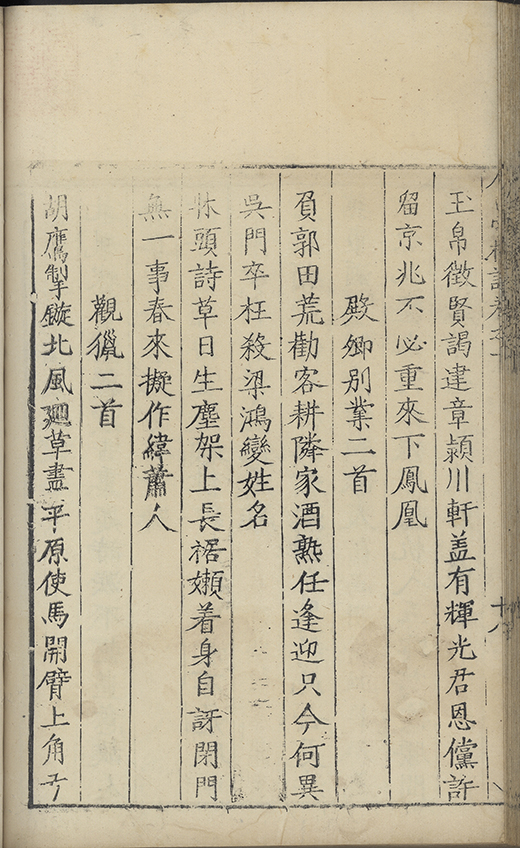 十八
玉帛徵賢謁建章潁川軒盖有輝光君恩儻許
留京兆不必重來下鳳凰
殿卿别業二首
負郭田荒勸客耕隣家酒熟任逢迎只今何異
吳門卒枉殺梁鴻變姓名
牀頭詩草日生塵架上長裾嬾着身自訝閉門
無一事春來擬作緯蕭人
觀獵二首
胡鷹掣鏇北風廻草盡平原使馬開臂上角弓